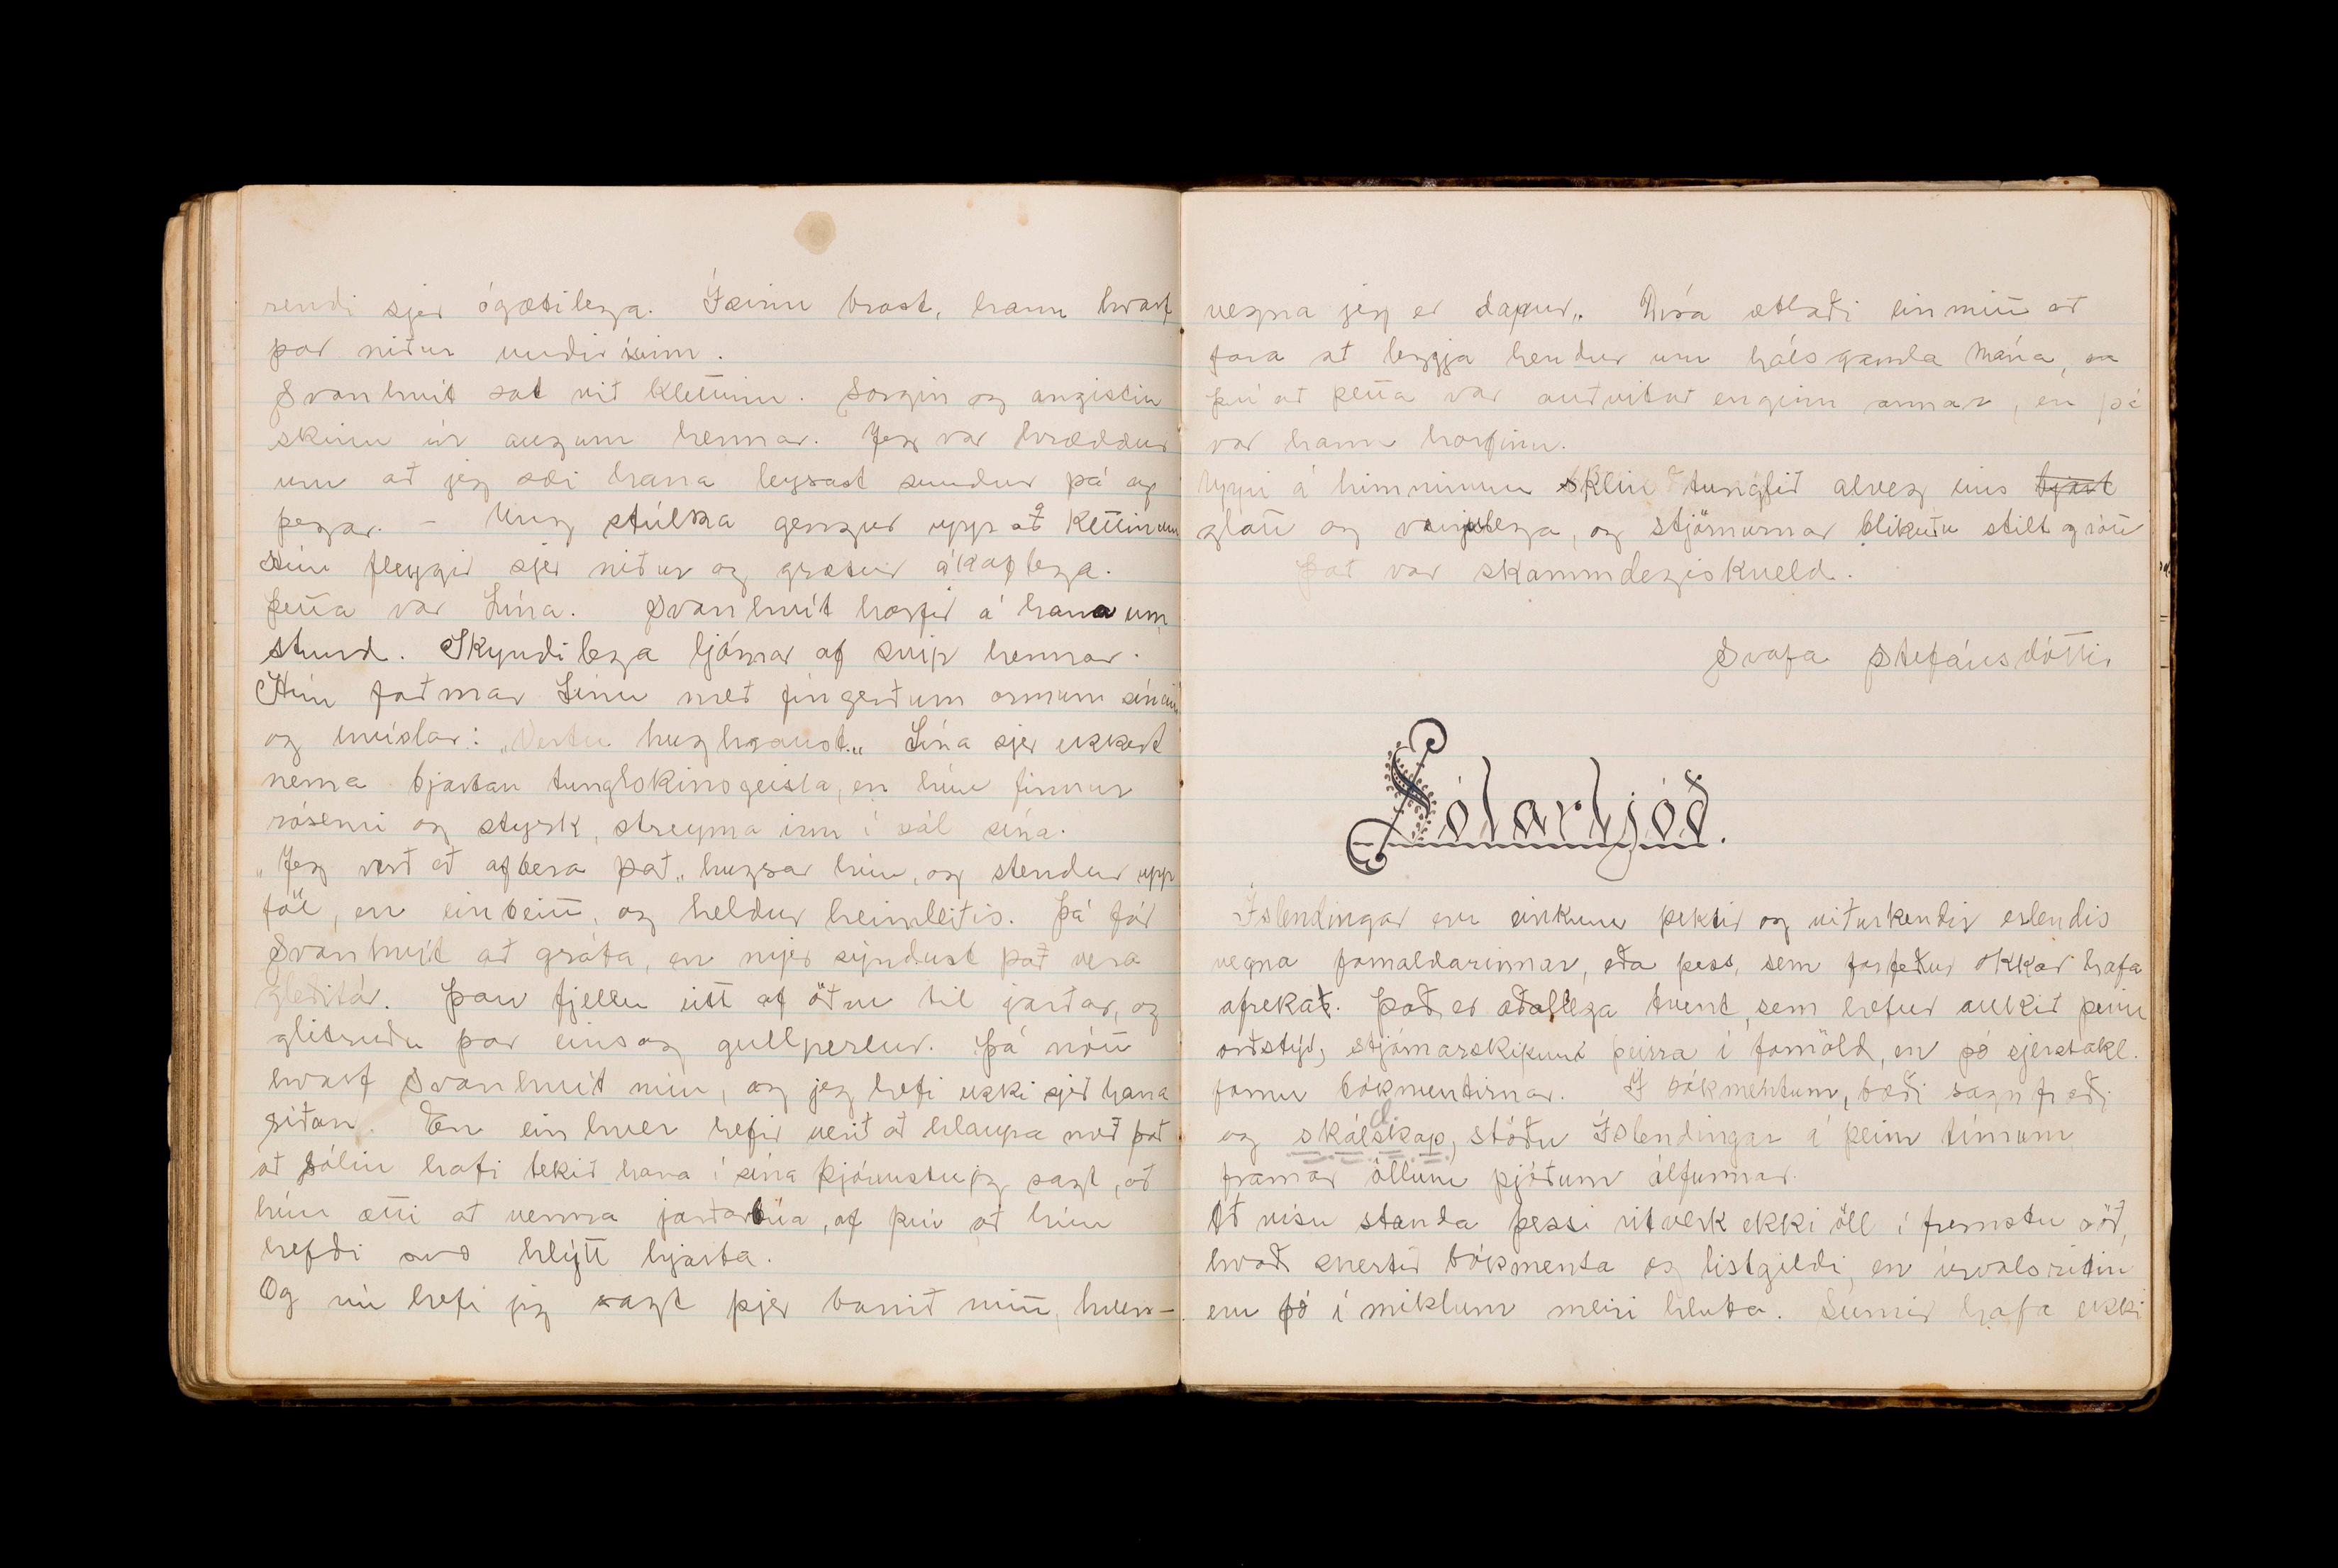 rendi sjer ógætilega. Ísinn brast, hann hvarf
þar niður undir ísinn.
Svanhvít sat við klettinn. Sorgin og angistin
skinu úr augum hennar. Jeg var hræddur
um að jeg sæi hana leysast sundur þá og
þegar. – Ung stúlka gengur upp að klettinum
Hún fleygir sjer niður og grætur ákaflega.
Þetta var Lína. Svanhvít horfir á hana um
stund. Skyndilega ljómar af svip hennar.
Hún faðmar Línu með fíngerðum örmum sínum
og hvíslar: „Vertu hughraust.„ Lína sjer ekkert
nema bjartan tunglskinsgeisla, en hún finnur
rósemi og styrk, streyma inn í sál sína.
„Jeg verð að afbera það„ hugsar hún, og stendur upp
föl, en einbeitt, og heldur heimleiðis. Þá fór
Svanhvít að gráta, en mjer sýndust það vera
gleðitár. Þau fjellu ótt af öðru til jarðar, og
glitruðu þar eins og gullperlur. Þá nótt
hvarf Svanhvít mín, og jeg hefi ekki sjeð hana
síðan. En einhver hefir verið að hlaupa með það
að sólin hafi tekið hana í sína þjónustu og sagt, að
hún ætti að verma jarðarbúa, af því að hún
hefði svo hlýtt hjarta.
Og nú hefi jeg sagt þjer barnið mitt, hvers-
vegna jeg er dapur„. Dísa ætlaði einmitt að
fara að leggja hendur um háls gamla Mána,
því að þetta var auðvitað enginn annar, en þá
var hann horfinn.
Uppi á himninum skein tunglið alveg eins bjart
glatt og venjulega, og stjörnurnar blikuðu stilt og rótt
Það var skammdegiskveld.
Svafa Stefánsdóttir
Sólarljóð.
Íslendingar eru einkum þektir og viðurkendir erlendis
vegna fornaldarinnar, eða þess, sem forfeður okkar hafa
afrekað. Það er aðallega tvent, sem hefur aukið þeim
orðstýr, stjórnarskipun þeirra í fornöld, en þó sjerstakl.
fornu bókmentirnar. Í bókmentum, bæði sagnfræði
og skáldskap, stóðu Íslendingar á þeim tímum
framar öllum þjóðum álfunnar.
Að vísu standa þessi ritverk ekki öll í fremstu röð,
hvað snertir bókmenta og listgildi, en úrvalsritin
eru þó í miklum meiri hluta. Sumir hafa ekki